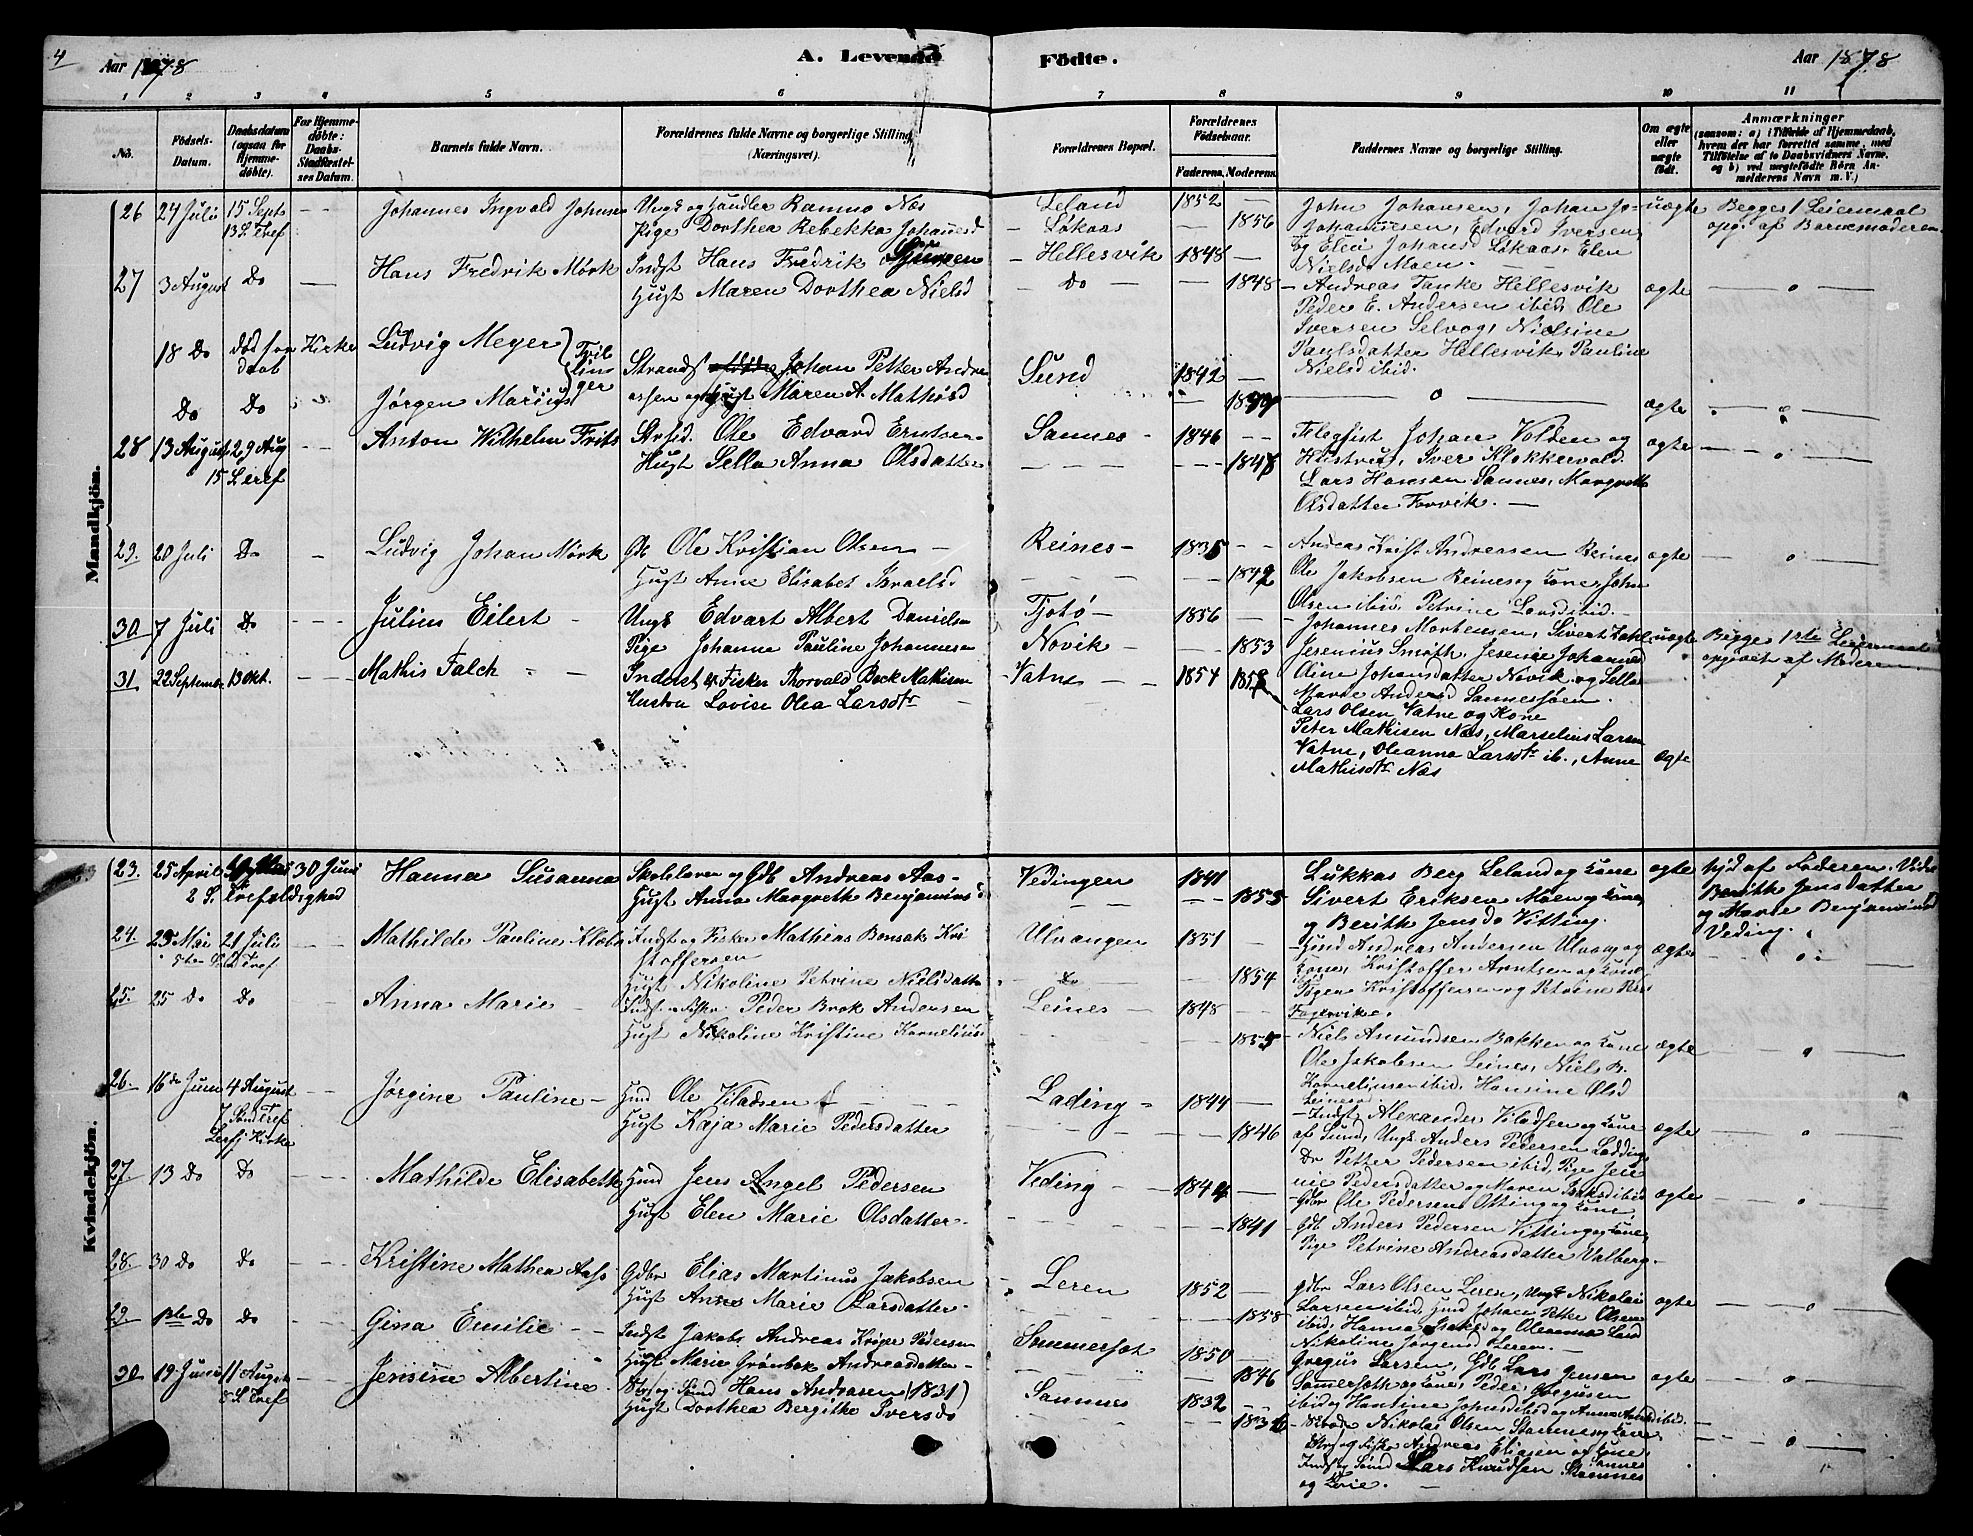 4
Aar 1878
A. Levende
Födte.
Aar 1878
1 2 3 4 5 6 7 8 9 10 11
No.
Födsels-Datum.
Daabsdatum (ogsaa for Hjemme-döbte).
For Hjemme-döbte: Daabs-Stadfæstel-ses Datum.
Barnets fulde Navn.
Forældrenes fulde Navne og borgerlige Stilling (Næringsvei).
Forældrenes Bopæl.
Forældrenes Födselsaar.
Faderens. Moderens.
Faddernes Navne og borgerlige Stilling.
Om ægte eller uægte födt.
Anmærkninger
(saasom: a) i Tilfælde af Hjemmedaab, hvem der har forrettet samme, med Tilföielse af to Daabsvidners Navne, og b) ved uægtefödte Börn An-melderens Navn m. V.)
Mandkjön.
26 27 Juli 15 Septr 13 S. Tref — Johannes Ingvald Johnsen
Ungk og Handler Rasmus Næs
Pige Dorthea Rebekka Johannesd
Leland 1852
Løkaas 1856
John Johansen, Johan Jo-
hannesen, Edvard Iversen
og Elen Johansd Løkaas, Elen
Nielsd Moen.
uægte
Begge 1 Leiermaal
opg. af Barnemoderen
27 3 August Do — Hans Fredrik Mörk
Indst Hans Fredrik
Hust Maren Dorthea Nielsd
Hellesvik 1848
Do 1848
Andreas Tanke Hellesvik
Peder E. Andersen ibid, Ole
Iversen Selvog, Nielsine
Paulsdatter Hellesvik, Pauline
Nielsd ibid.
ægte
18 Do död før daab Kirke Ludvig Meyer
Do Do Jørgen Marius
Tvil
lin
ger
Strands Johan Petter Andre
assen og Hust Maren A. Mathisd
Sund 1842
ægte
28 13 August 29 Aug 15 S. Tref — Anton Wilhelm Frits
Strsid. Ole Edvard Erntsen
Hust Sella Anna Olsdatter
Sannes 1846
1847
Telegfist Johan Volden og
Hustru, Iver Klokkervold
Lars Hansen Sannes, Margrethe
Olsdatter Forvik.
ægte
29. 20 Juli Do — Ludvig Johan Mörk
Gb Ole Kristian Olsen
Hust Anne Elisabet Israelsd
Reines 1835
1842
Andreas Krist Andreasen Reines
Ole Jakobsen Reines og Kone, John
Olsen ibid, Petrine Larsd ibid.
ægte
30 7 Juli Do Julius Eilert
Ungk Edvart Albert Danielsen
Pige Johanna Pauline Johannesen
Tjotö 1856
Novik 1853
Johannes Mortensen, Sivert Zahl
Jesenius Smith, Jesenie Johannesd
Oline Johansdatter Novik og Sella
Marie Andersd Sannessjøen.
uægte
Begge 1ste Leiermaal
opgivet af Moderen
31. 22 September 13 Okt. Mathis Falch
Inderst & Fisker Thorvald Bock Mathisen
Hustru Lovise Olea Larsdtr
Vatne 1854 1858
Lars Olsen Vatne og Kone
Peter Mathisen Næs, Marselius Larsen
Vatne, Oleanna Larsdtr ib., Anne
Mathisdtr Næs
ægte
Kvindekjön.
23. 25 April 30 Juni
2 S. Trefoldighed
Hanna Susanna
Skolelærer og Gdb Andreas Aas
Hust Anna Margrethe Benjamins d
Vedingen 1841
1853
Lukkas Berg Leland og Kone
Sivert Eriksen Moen og Kone
og Berith Jensd Vitting.
ægte
hjd af Faderen. Vidn
Berith Jensdatter
og Marie Benjaminsd
Veding.
24. 23 Mai 21 Juli
5te Snd Tref
Mathilde Pauline Klebo
Indst og Fisker Mathias Bonsak Kri
stoffersen
Hust Nikoline Petrine Nielsdatter
Ulvangen 1851
Do 1854
Hmd Andreas Andersen Ulvang og
Kone, Kristoffer Arntsen og Kone
Jørgen Kristoffersen og Petrine
Fagervike.
ægte
25. 25 Do Do Anna Marie
Indst. & Fisker Peder Brok Andersen
Hust Nikoline Kristine Kornelius
Leines 1848
1855
Niels Amundsen Bakken og Kone
Ole Jakobsen Leines, Niels B.
Korneliussen ibid, Hansine Olsd
Leines.
ægte
26. 16de Juni 4 August
7 Snd Tref
Jørgine Pauline
Hmd Ole Viladsen
Hust Kaja Marie Pedersdatter
Lading 1844
1846
Indst Alexander Viladsen og Kone
af Sund, Ungk Anders Pedersen Ladding
Do Petter Pedersen ibid, Pige Jen
nie Pedersdatter og Maren Isaksd ibid
ægte
27. 13 Do Do Mathilde Elisabeth
Hmd Jens Angel Pedersen
Hust Elen Marie Olsdatter
Veding 1844
1841
Gdbr Ole Pedersen Otting og Kone,
Gdb Anders Pedersen Vitting og Kone,
Pige Petrine Andreasdatter Valberg.
ægte
28. 30 Do Do Kristine Mathea Aass
Gdbr Elias Martinus Jakobsen
Hust Anne Marie Larsdatter
Leren 1852
1858
Gdbr Lars Olsen Leren, Ungk Nikolai
Larsen ibid, Hmd Johan Petter Olsen
ibid, Hanna Isaksd og Oleanna Larsd
Nikoline Jørgensd Leren.
ægte
29. 1ste Do Do Gina Emilie
Indst Jakob Andreas Krøger Pedersen
Hust Marie Grønbek Andreasdatter
Sommerset 1850
1846
Gregus Larsen, Gdb Lars Jensen
Somerseth og Kone, Peder Gregusen
ibid og Hansine Johnsd ibid og Anna Arntsd ibid.
ægte
30 19 Juni 11 August
8 S. Tref
Jensine Albertine
Strs og Smd Hans Andreasen (1831)
Hust Dorthea Bergitke Iversd
Sannes 1832
1836
Nikolai Olsen Stamnes og Kone,
Strs og Fisker Andreas Eliasen og Kone
Indst og Smd Lars Knudsen Stamnes